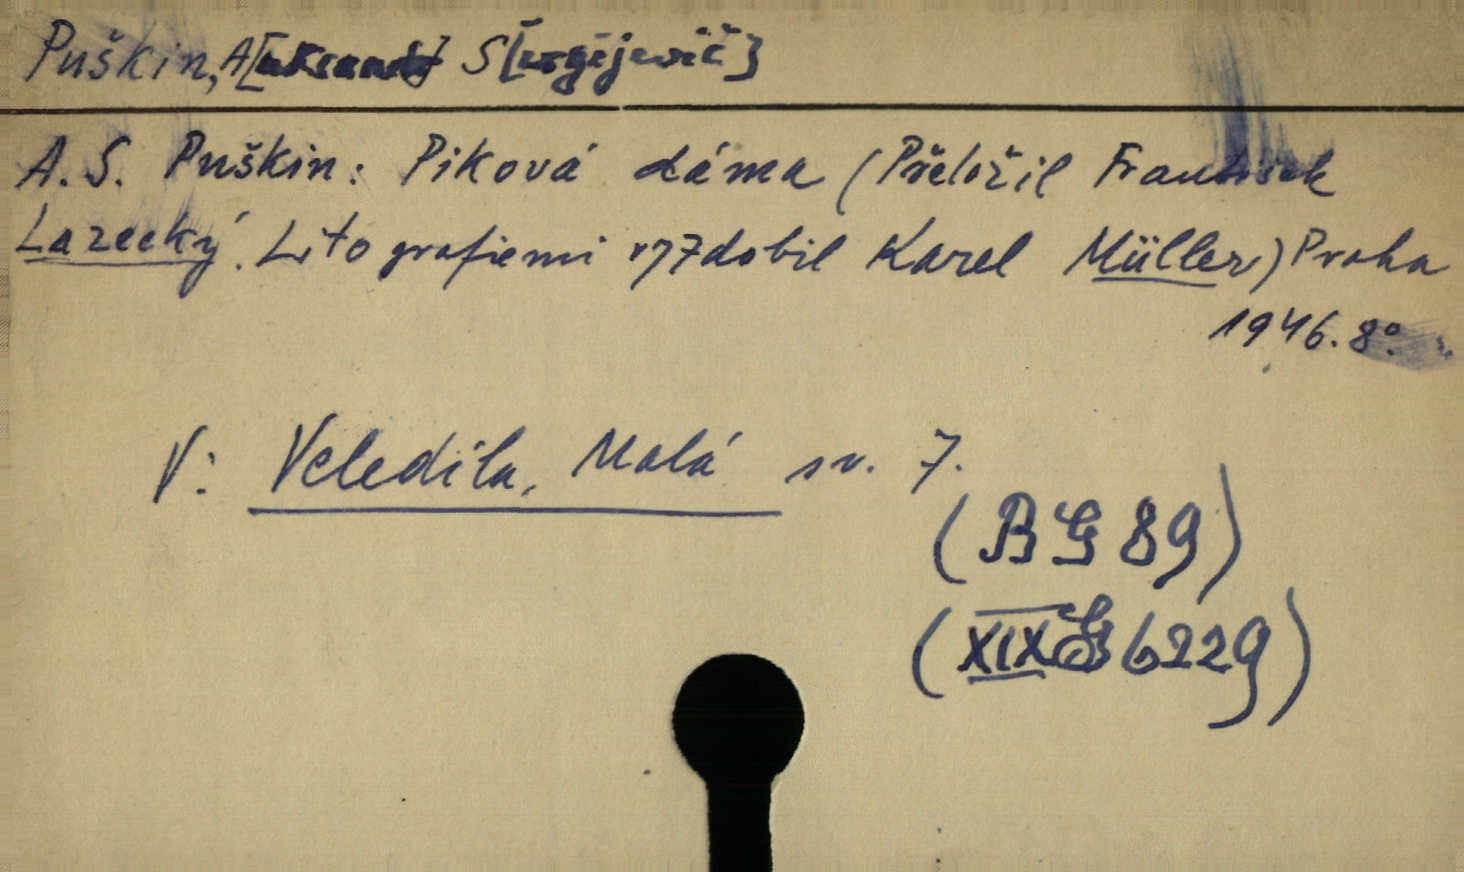 Puškin, A[leksandr] S[ergějevič]
A. S. Puškin: Piková dáma (Přeložil František
Lazecký. Litografiemi vyzdobil Karel Müller) Praha
1946. 8°.
V: Veledíla, Malá sv. 7.
(BG 89)
(XIX G 6229)